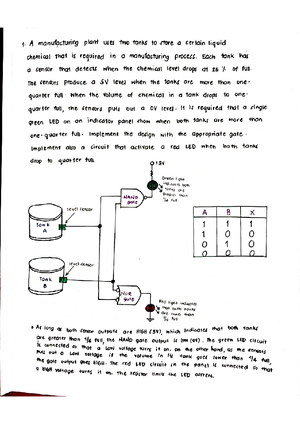 1. A manufacturing plant uses two tanks to store a certain liquid
chemical that is required in a manufacturing process. Each tank has
a sensor that detects when the chemical level drops at 25 % of full.
The sensors produce a 5V level when the tanks are more than one-
quarter full. When the volume of chemical in a tank drops to one-
quarter full, the sensors puts out a 0V level. It is required that a single
green LED on an indicator panel show when both tanks are more than
one-quarter full. Implement the design with the appropriate gate.
Implement also a circuit that activate a red LED when both tanks
drop to quarter full.
+5V
Green light
indicates both
tanks are
greater than
1/4 full
NAND
gate
Level sensor
Tank
A
A B X
1 1 1
1 0 0
0 1 0
0 0 0
Level sensor
Tank
B
NOR
gate
Red light indicates
both tanks
1/4 full
* As long as both sensor outputs are HIGH (5V), which indicates that both tanks
are greater than 1/4 full, the NAND gate output is LOW (0V). The green LED circuit
is connected so that a Low voltage turns it on. On the other hand, as the sensors
puts out a Low voltage if the volume in the tank goes lower than 1/4 full,
the gate output goes HIGH. The red LED circuit in the panel is connected so that
a HIGH voltage turns it on. The resistor limits the LED current.